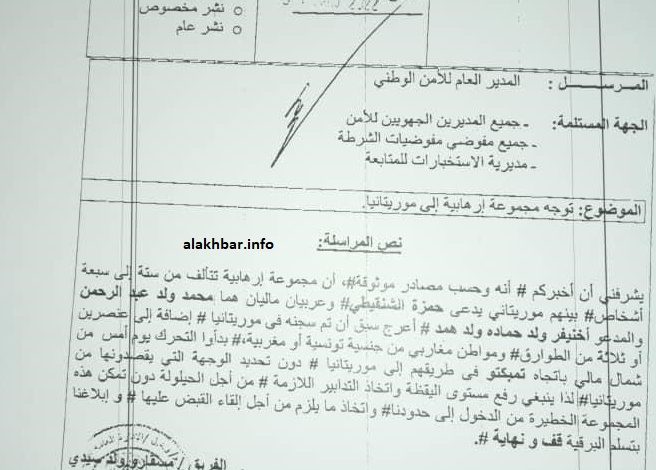 نشر مخصوص
نشر عام
2022
المرســـــل : المدير العام للأمن الوطني
الجهة المستلمة: ـ جميع المديرين الجهويين للأمن
ـ جميع مفوضي مفوضيات الشرطة
ـ مديرية الاستخبارات للمتابعة
الموضوع: توجه مجموعة إرهابية إلى موريتانيا.
alakhbar.info
نص المراسلة:
يشرفني أن أخبركم # أنه وحسب مصادر موثوقة#، أن مجموعة إرهابية تتألف من ستة إلى سبعة
أشخاص# بينهم موريتاني يدعى حمزة الشنقيطي# وعربيان ماليان هما محمد ولد عبد الرحمن
والمدعو أخنيفر ولد حماده ولد همد # أعرج سبق أن تم سجنه في موريتانيا # إضافة إلى عنصرين
أو ثلاثة من الطوارق# ومواطن مغاربي من جنسية تونسية أو مغربية،# بدأوا التحرك يوم أمس من
شمال مالي باتجاه تمبكتو في طريقهم إلى موريتانيا # دون تحديد الوجهة التي يقصدونها من
موريتانيا# لذا ينبغي رفع مستوى اليقظة واتخاذ التدابير اللازمة # من أجل الحيلولة دون تمكن هذه
المجموعة الخطيرة من الدخول إلى حدودنا# واتخاذ ما يلزم من أجل إلقاء القبض عليها # و إبلاغنا
بتسلم البرقية قف و نهاية #.
الفريق / مسقارو ولد سيدي